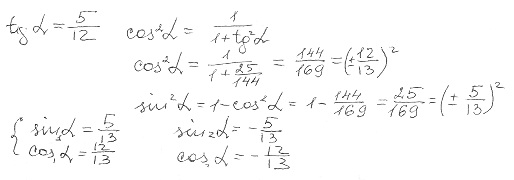 tg α = 5/12 cos²α = 1/(1+tg²α)
cos²α = 1/(1+25/144) = 144/169 = (±12/13)²
sin²α = 1-cos²α = 1-144/169 = 25/169 = (±5/13)²
{ sin₁α = 5/13 sin₂α = -5/13
cos₁α = 12/13 cos₂α = -12/13